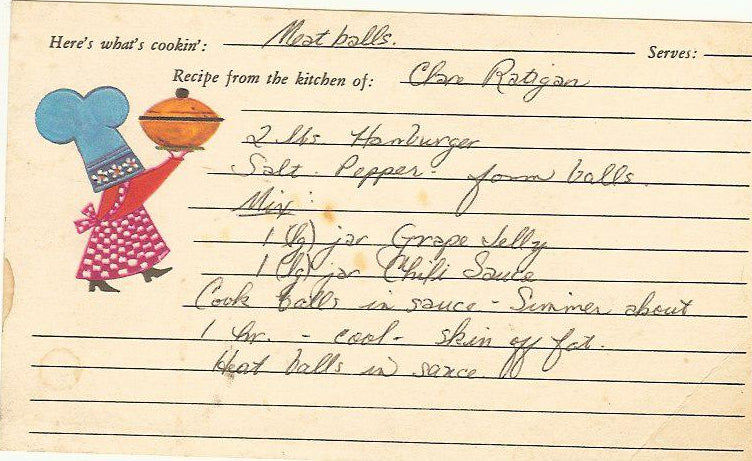 Here's what's cookin': Meatballs. Serves:
Recipe from the kitchen of: Clare Ratigan
2 lbs. Hamburger
Salt. Pepper. form balls.
Mix:
1 (lg) jar Grape Jelly
1 (lg) jar Chili Sauce
Cook balls in sauce - Simmer about
1 hr. - cool - skin off fat.
Heat balls in sauce.